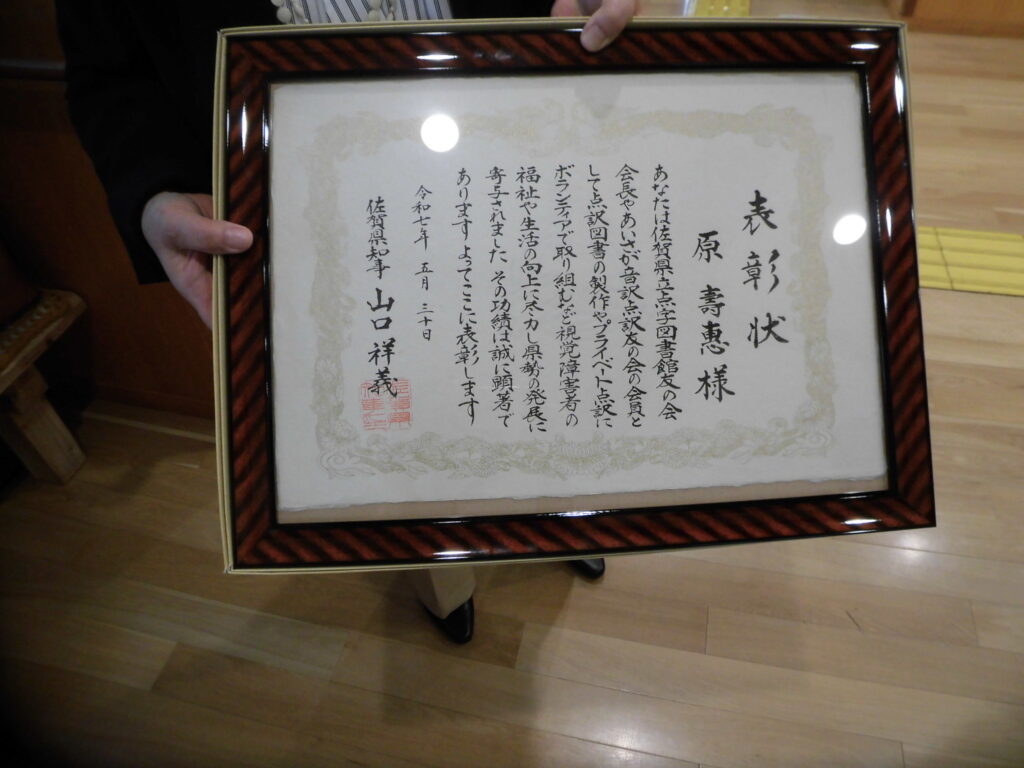 表彰状
原壽惠様
あなたは佐賀県立点字図書館友の会
会長やあいさが音訳点訳友の会の会員と
して点訳図書の製作やプライベート点訳に
ボランティアで取り組むなど視覚障害者の
福祉や生活の向上に尽力し県勢の発展に
寄与されました その功績は誠に顕著で
あります よってここに表彰します
令和七年 五月 三十日
佐賀県知事 山口祥義